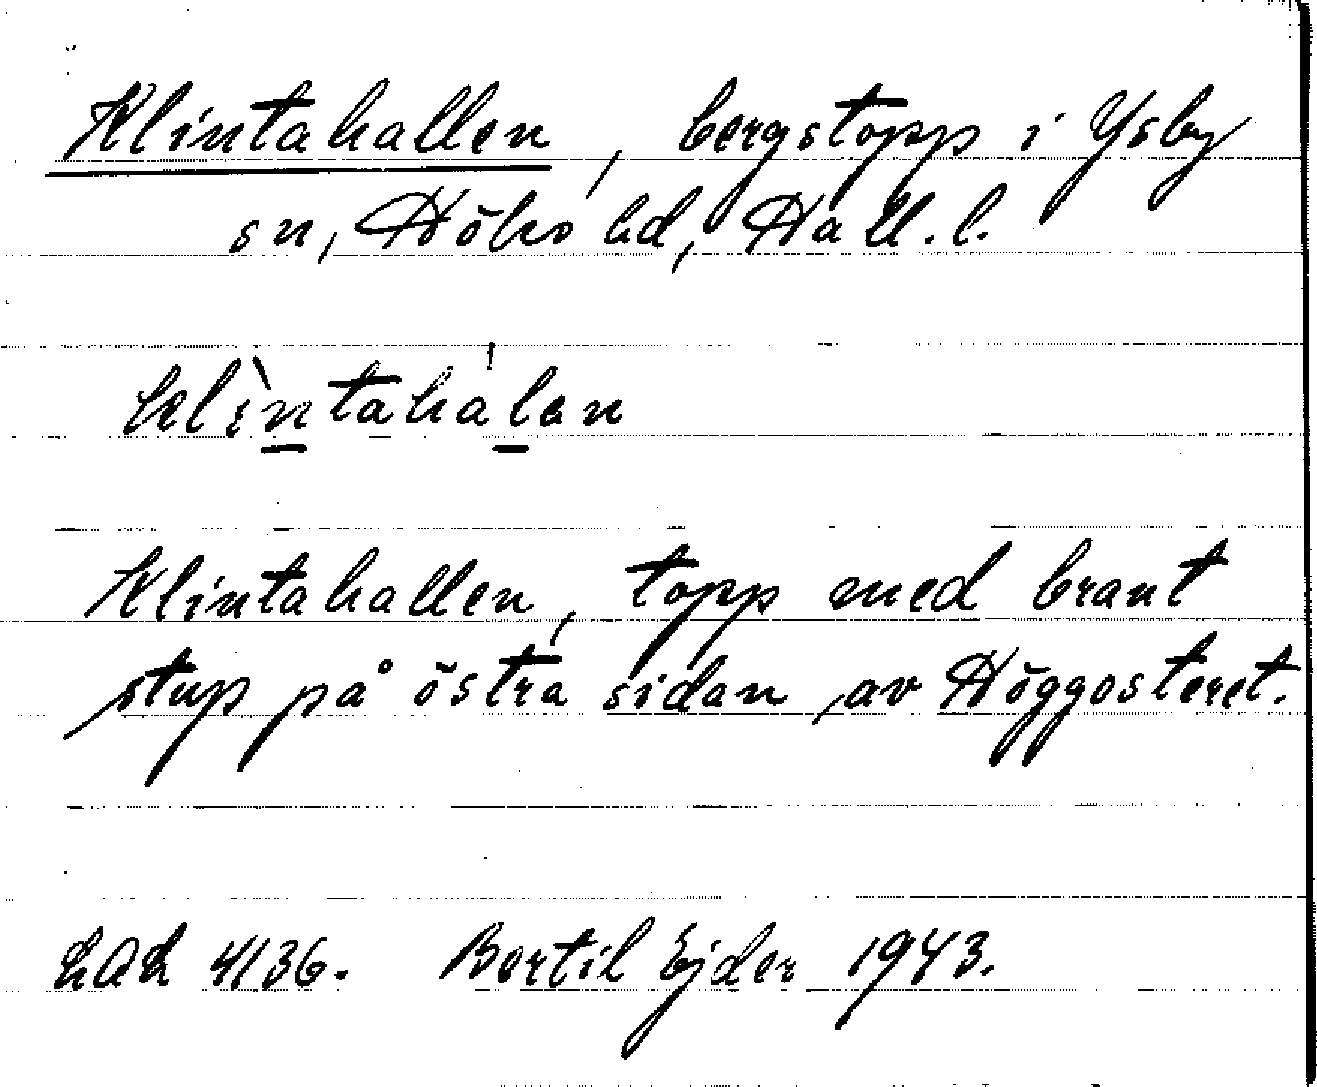 Klintahallen, bergstopp i Ysby
sn, Höks hd, Hall. l.
klìntahálen
Klintahallen, topp med brant
stup på östra sidan av Höggosteret.
LAL 4136. Bertil Ejder 1943.